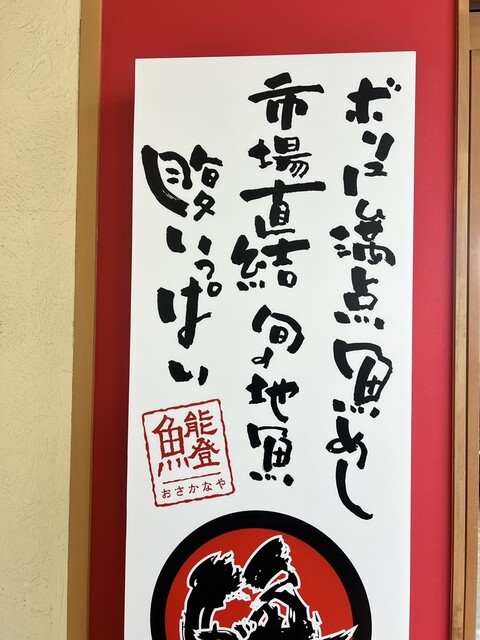 ボリューム満点 魚めし
市場直結 旬の地魚
腹いっぱい
能登
魚
おさかなや